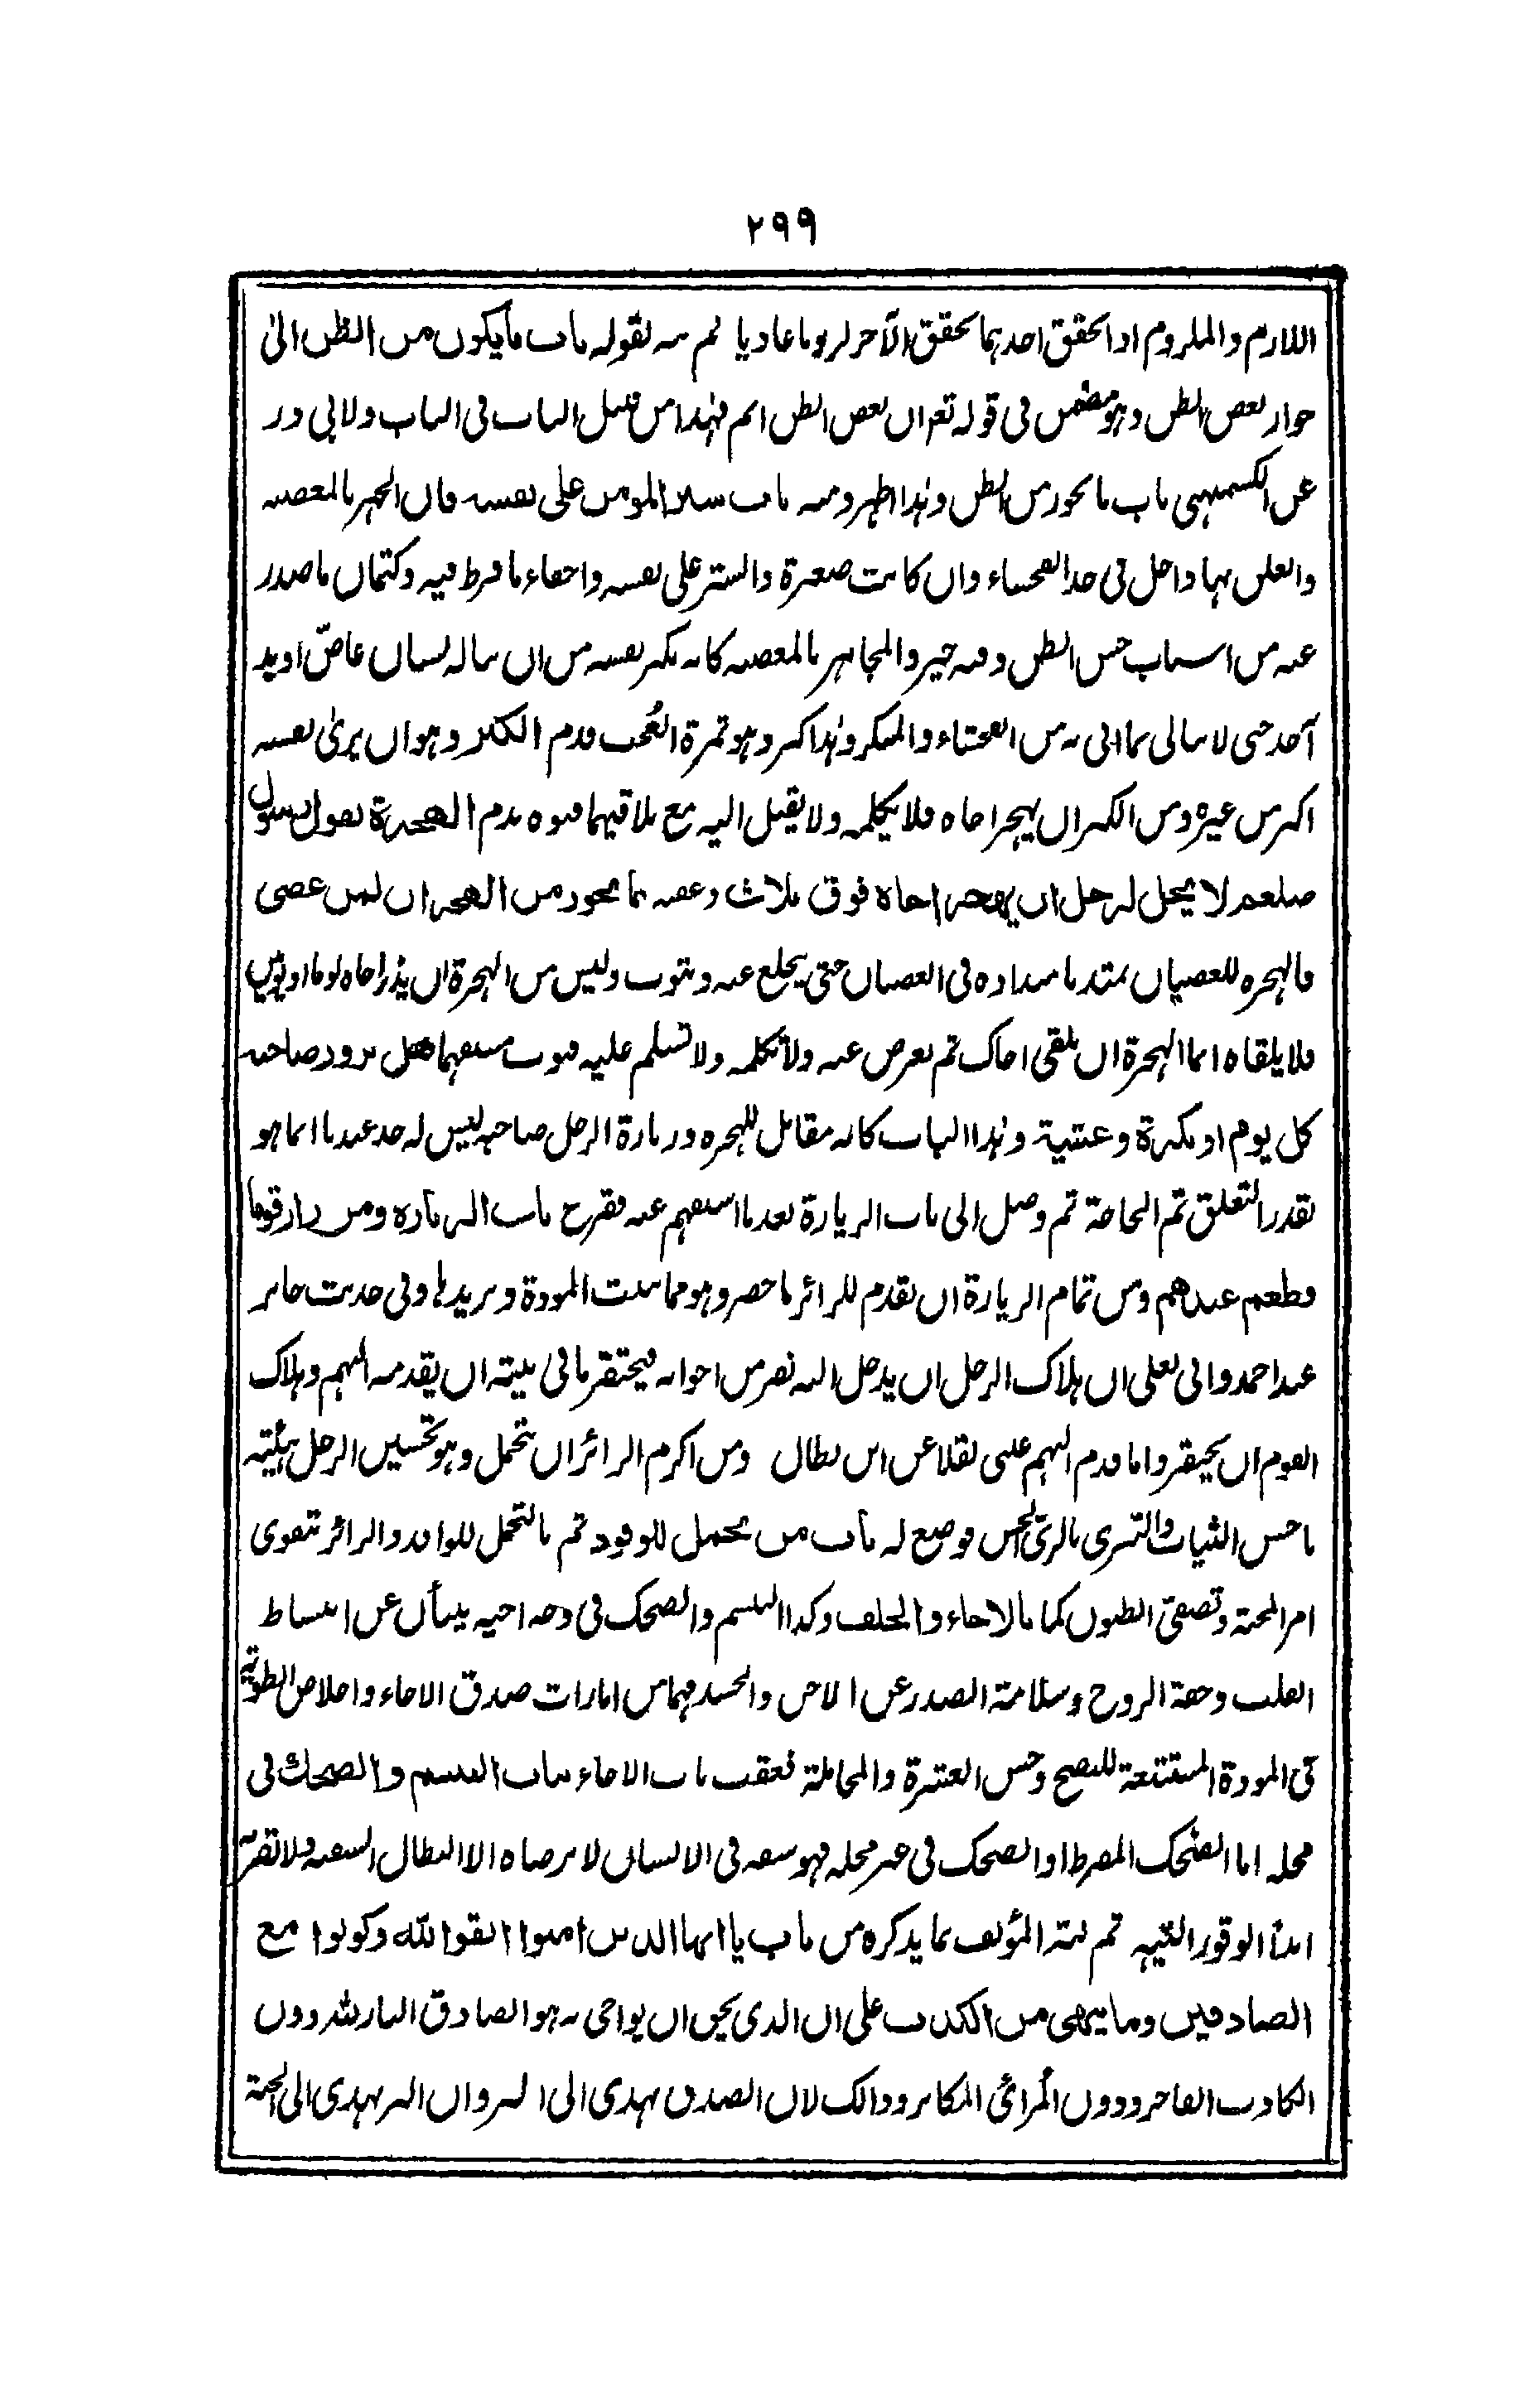 ٢٩٩
اللازم والملزوم اذا تحقق احدهما تحقق الآخر لزوما عاديا ثم نبه بقوله باب ما يكون من الظن الى
جواز بعض الظن وهو مضمن فى قوله تعم ان بعض الظن اثم فهذا من قبيل الباب فى الباب ولابى ذر
عن الكشميهنى باب ما يجوز من الظن وهذا اظهر ومنه باب ستر المومن على نفسه فان الجهر بالمعصية
والعلن بها داخل فى حد الفحشاء وان كانت صغيرة والستر على نفسه واخفاء ما فرط فيه وكتمان ما صدر
عنه من اسباب حسن الظن وفيه خير والمجاهر بالمعصية كانه يكبر نفسه من ان يناله لسان عاض او يد
آخذ حتى لا يبالى بما اتى به من الفحشاء والمنكر وهذا كبر وهو ثمرة العُجب فذم الكبر وهو ان يرىٰ نفسه
اكبر من غيره ومن الكبر ان يهجر اخاه فلا يكلمه ولا يقبل اليه مع تلاقيهما فبوه بذم الهجرة بقول رسول
صلعم لا يحل لرجل ان يهجر اخاه فوق ثلاث وعقبه بما يجوز من الهجران لمن عصى
فالهجره للعصيان يمتد بامتداده فى العصيان حتى يخلع عنه ويتوب وليس من الهجرة ان يذر اخاه يوما او يومين
فلا يلقاه انما الهجرة ان تلقى اخاك ثم تعرض عنه ولا تكلمه ولا تسلم عليه فبوب مستفهما هل يزور صاحبه
كل يوم او بكرة وعشية وهذا الباب كانه مقابل للهجره وزيارة الرجل صاحبه ليس له حد عندنا انما هو
بقدر التعلق ثم الحاجة ثم وصل الى باب الزيارة بعد ما استفهم عنه فقرح باب الزياره ومن زار قوما
فطعم عندهم ومن تمام الزيارة ان تقدم للزائر ما حضر وهو مما يثبت المودة ويزيدها وفى حديث جابر
عند احمد وابى يعلى ان هلاك الرجل ان يدخل اليه نفر من اخوانه فيحتقر ما فى بيته ان يقدمه اليهم وهلاك
القوم ان يحتقروا ما قدم اليهم عينى نقلا عن ابن بطال ومن اكرم الزائر ان يتجمل وهو تحسين الرجل هيئته
باحسن الثياب والتزى بالزى الحسن فوضع له باب من تجمل للوفود ثم بالتجمل للوافد والزائر تتقوى
امر المحبة وتصفى البطون كما بالاخاء والحلف وكذا التبسم والضحك فى وجه اخيه ينبأ عن انبساط
القلب وخفة الروح وسلامة الصدر عن الاحن والحسد فهما من امارات صدق الاخاء واخلاص الطوية
فى المودة المستتبعة للنصح وحسن العشرة والمجاملة فعقب باب الاخاء بباب التبسم والضحك فى
محله اما الضحك المفرط او الضحك فى غير محله فهو سفه فى الانسان لا يرضاه الا البطال السفيه ولا تقربه
ابدا الوقور النبيه ثم نبه المؤلف بما يذكره من باب يا ايها الذين امنوا اتقوا الله وكونوا مع
الصادقين وما ينهى من الكذب على ان الذى يحق ان يواخى به هو الصادق البار لله دون
الكاذب الفاجر ودون المرائى المكابر وذالك لان الصدق يهدى الى البر وان البر يهدى الى الجنة